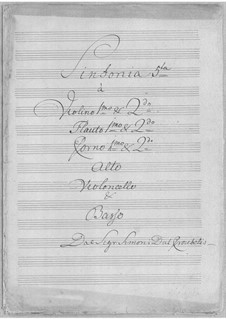 Sinfonia 5ta
à
Violino 1mo & 2do
Flauto 1mo & 2do
Corno 1mo & 2do
Alto
Violoncello
&
Basso
Del Sigr Simoni Dal